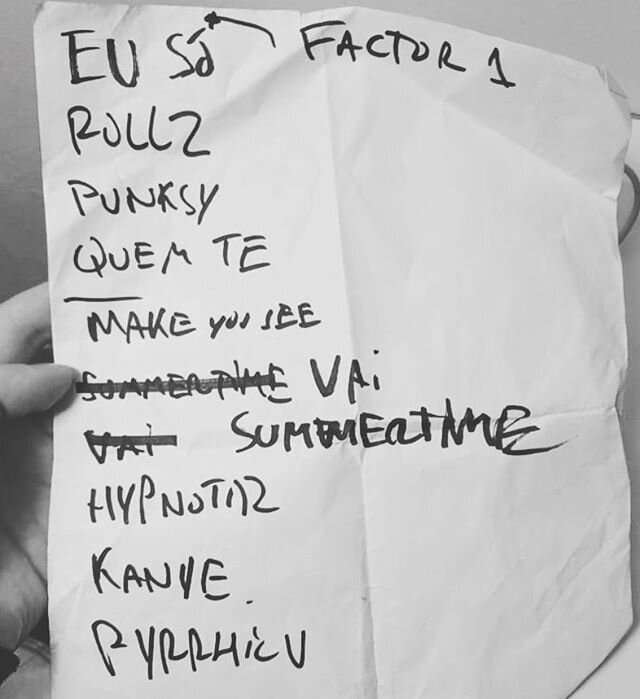 EU SÓ FACTOR 1
ROLLZ
PUNKSY
QUEM TE
MAKE YOU SEE
SUMMERTIME VAI
VAI SUMMERTIME
HYPNOTIZ
KANYE
PYRRHIC V